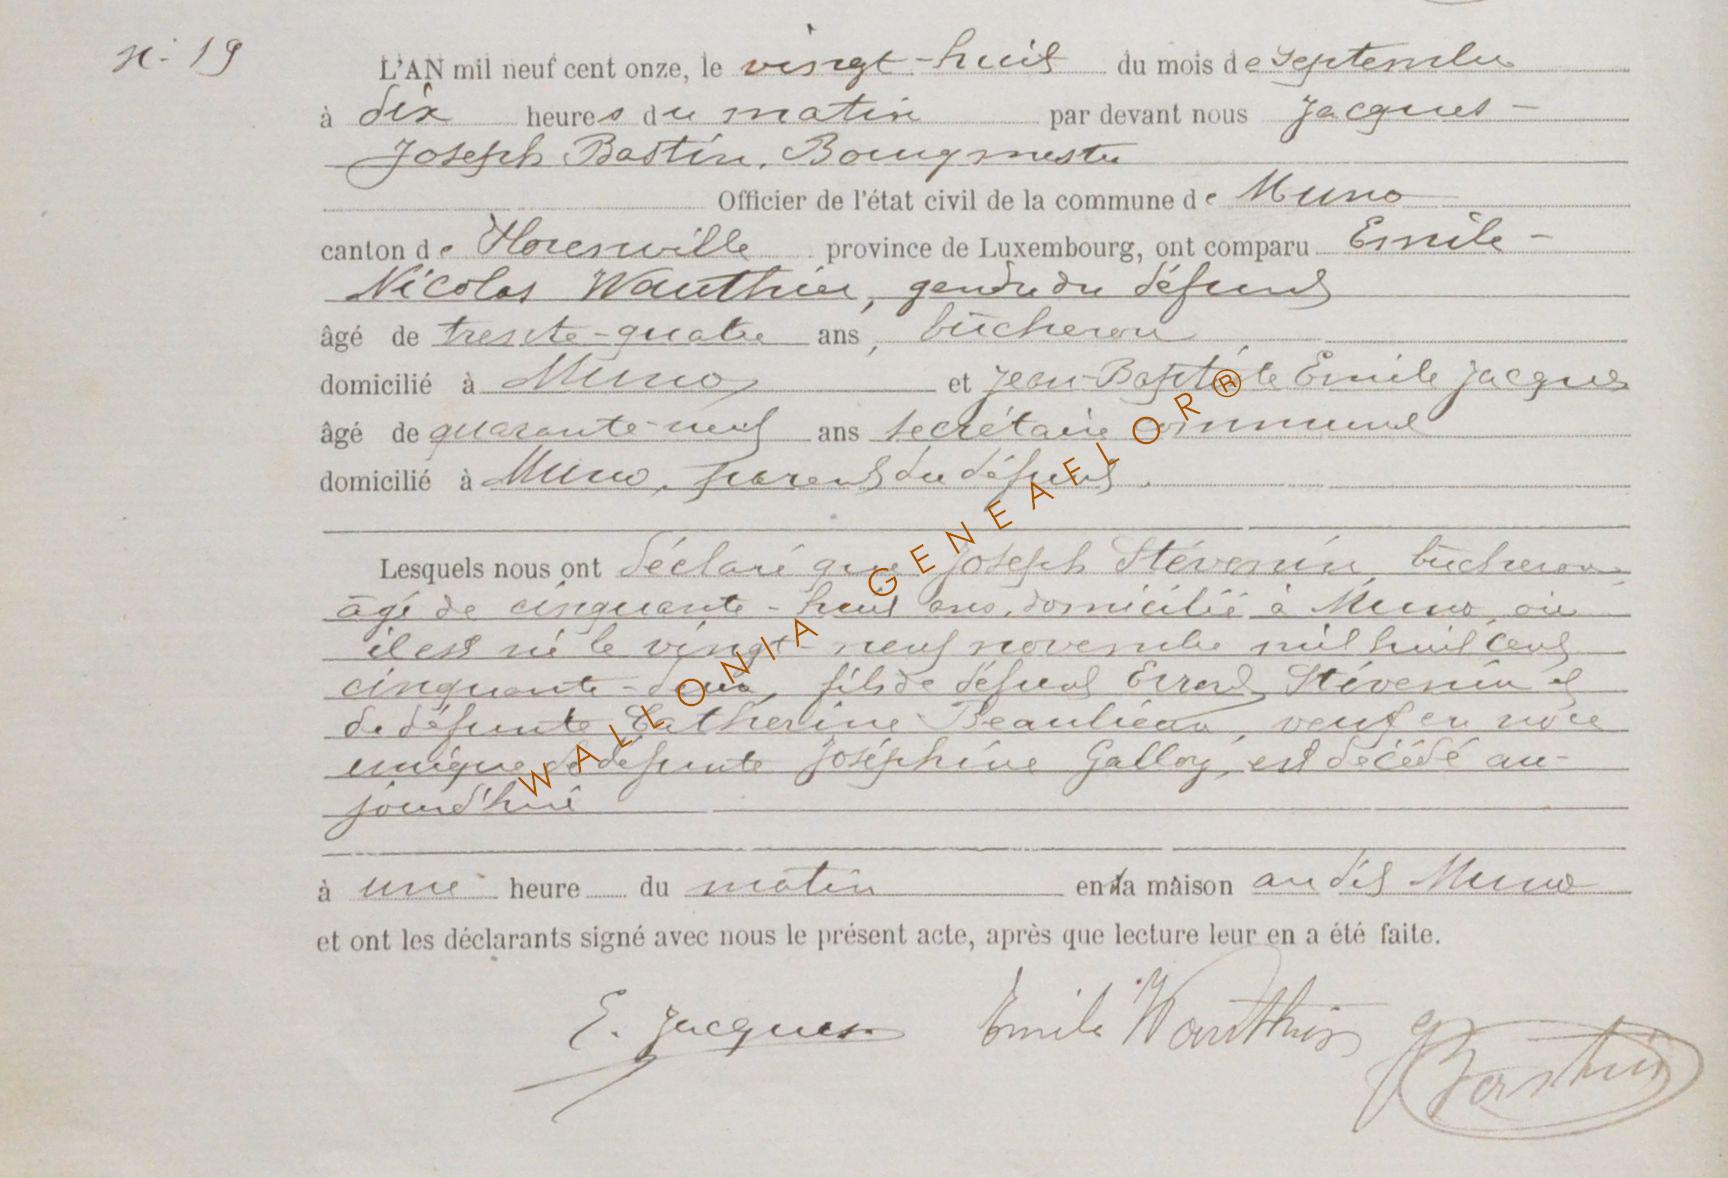 N. 19
L'AN mil neuf cent onze, le vingt-huit du mois de Septembre
à dix heures du matin par devant nous Jacques-
Joseph Bastin, Bourgmestre
Officier de l'état civil de la commune de Muno
canton de Florenville province de Luxembourg, ont comparu Emile-
Nicolas Wauthier, gendre du défunt
âgé de trente-quatre ans, bûcheron
domicilié à Muno et Jean-Baptiste Emile Jacques
âgé de quarante-neuf ans secrétaire communal
domicilié à Muno, parent du défunt.
Lesquels nous ont déclaré que Joseph Stévenin, bûcheron,
âgé de cinquante-huit ans, domicilié à Muno, où
il est né le vingt-neuf novembre mil huit cent
cinquante-deux, fils de défunt Errard Stévenin et
de défunte Catherine Beaulieu, veuf en noce
unique de défunte Joséphine Galloy, est décédé au-
jourd'hui
à une heure du matin en la maison au dit Muno
et ont les déclarants signé avec nous le présent acte, après que lecture leur en a été faite.
E. Jacques Emile Wauthier J Bastin
WALLONIA GENEAFLOR®